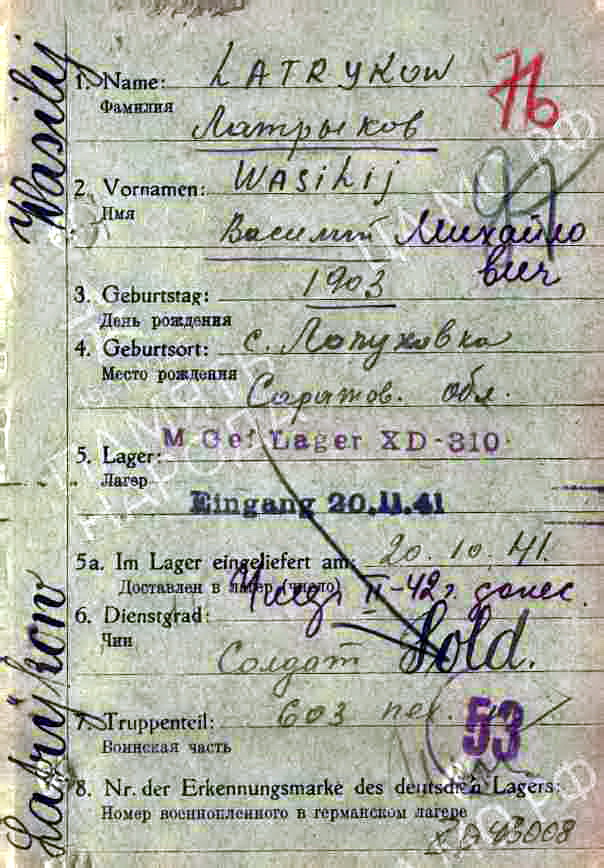 Wasilij
Latrykow
76
97
1. Name: LATRYKOW
Фамилия
Латрыков
2. Vornamen: WASILIJ
Имя
Василий Михайло
вич
3. Geburtstag: 1903
День рождения
4. Geburtsort: с. Лопуховка
Место рождения
Саратов. обл.
M Gef Lager XD-310
5. Lager:
Лагер
Eingang 20.11.41
5a. Im Lager eingeliefert am: 20.10.41.
Доставлен в лагер (число) II-42г. донес.
6. Dienstgrad: Sold.
Чин
Солдат
7. Truppenteil: 603 пех.
53
Воинская часть
8. Nr. der Erkennungsmarke des deutschen Lagers:
Номер военнопленного в германском лагере
ЦАМО РФ
ПАМЯТЬ
НАРОДА